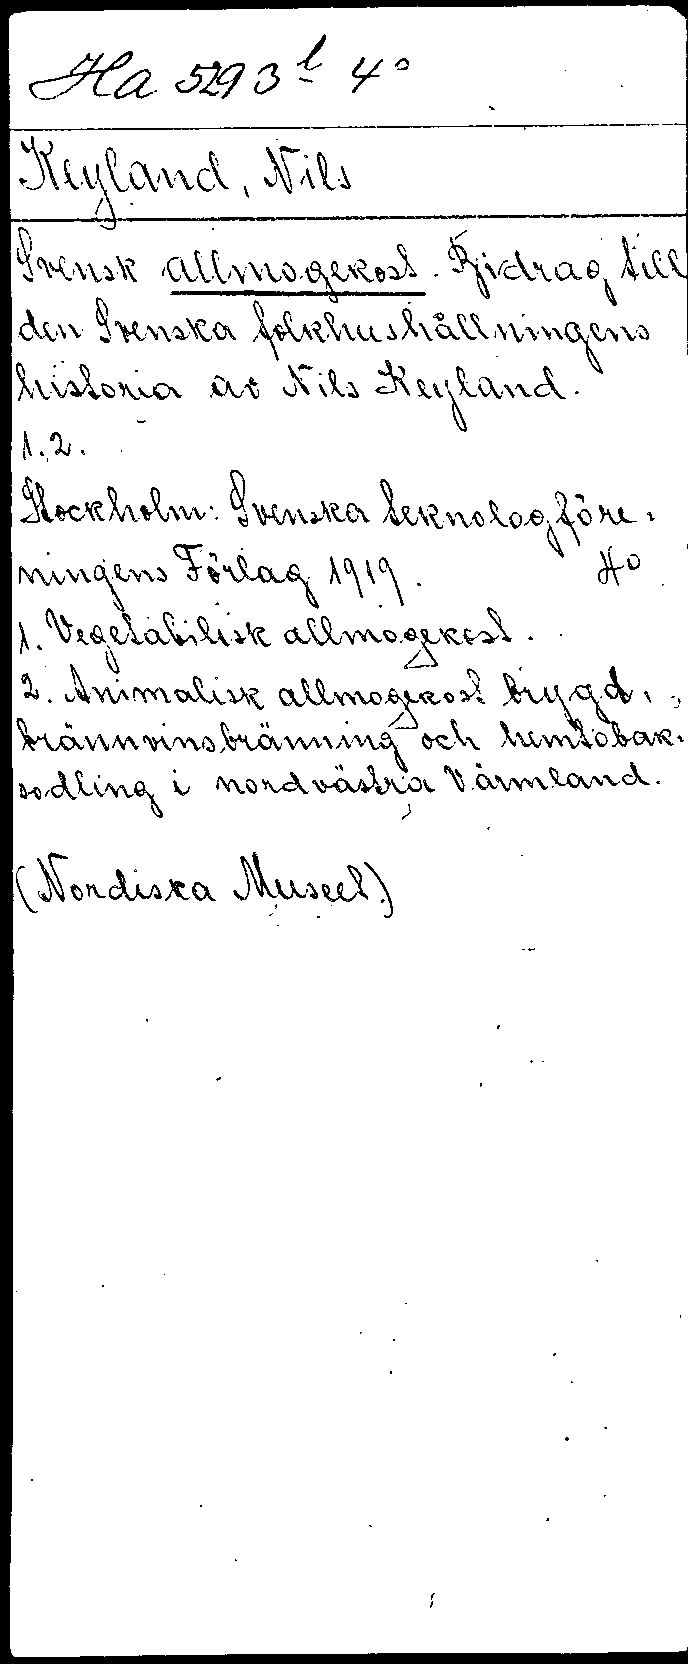 Ha 5293 l 4°
Keyland, Nils
Svensk allmogekost. Bidrag till
den Svenska folkhushållningens
historia av Nils Keyland.
1.2.
Stockholm: Svenska teknologföre-
ningens Förlag 1919. 4°
1. Vegetabilisk allmogekost.
2. Animalisk allmogekost brygd,
brännvinsbränning och hemtobak-
sodling i nordvästra Värmland.
(Nordiska Museet.)